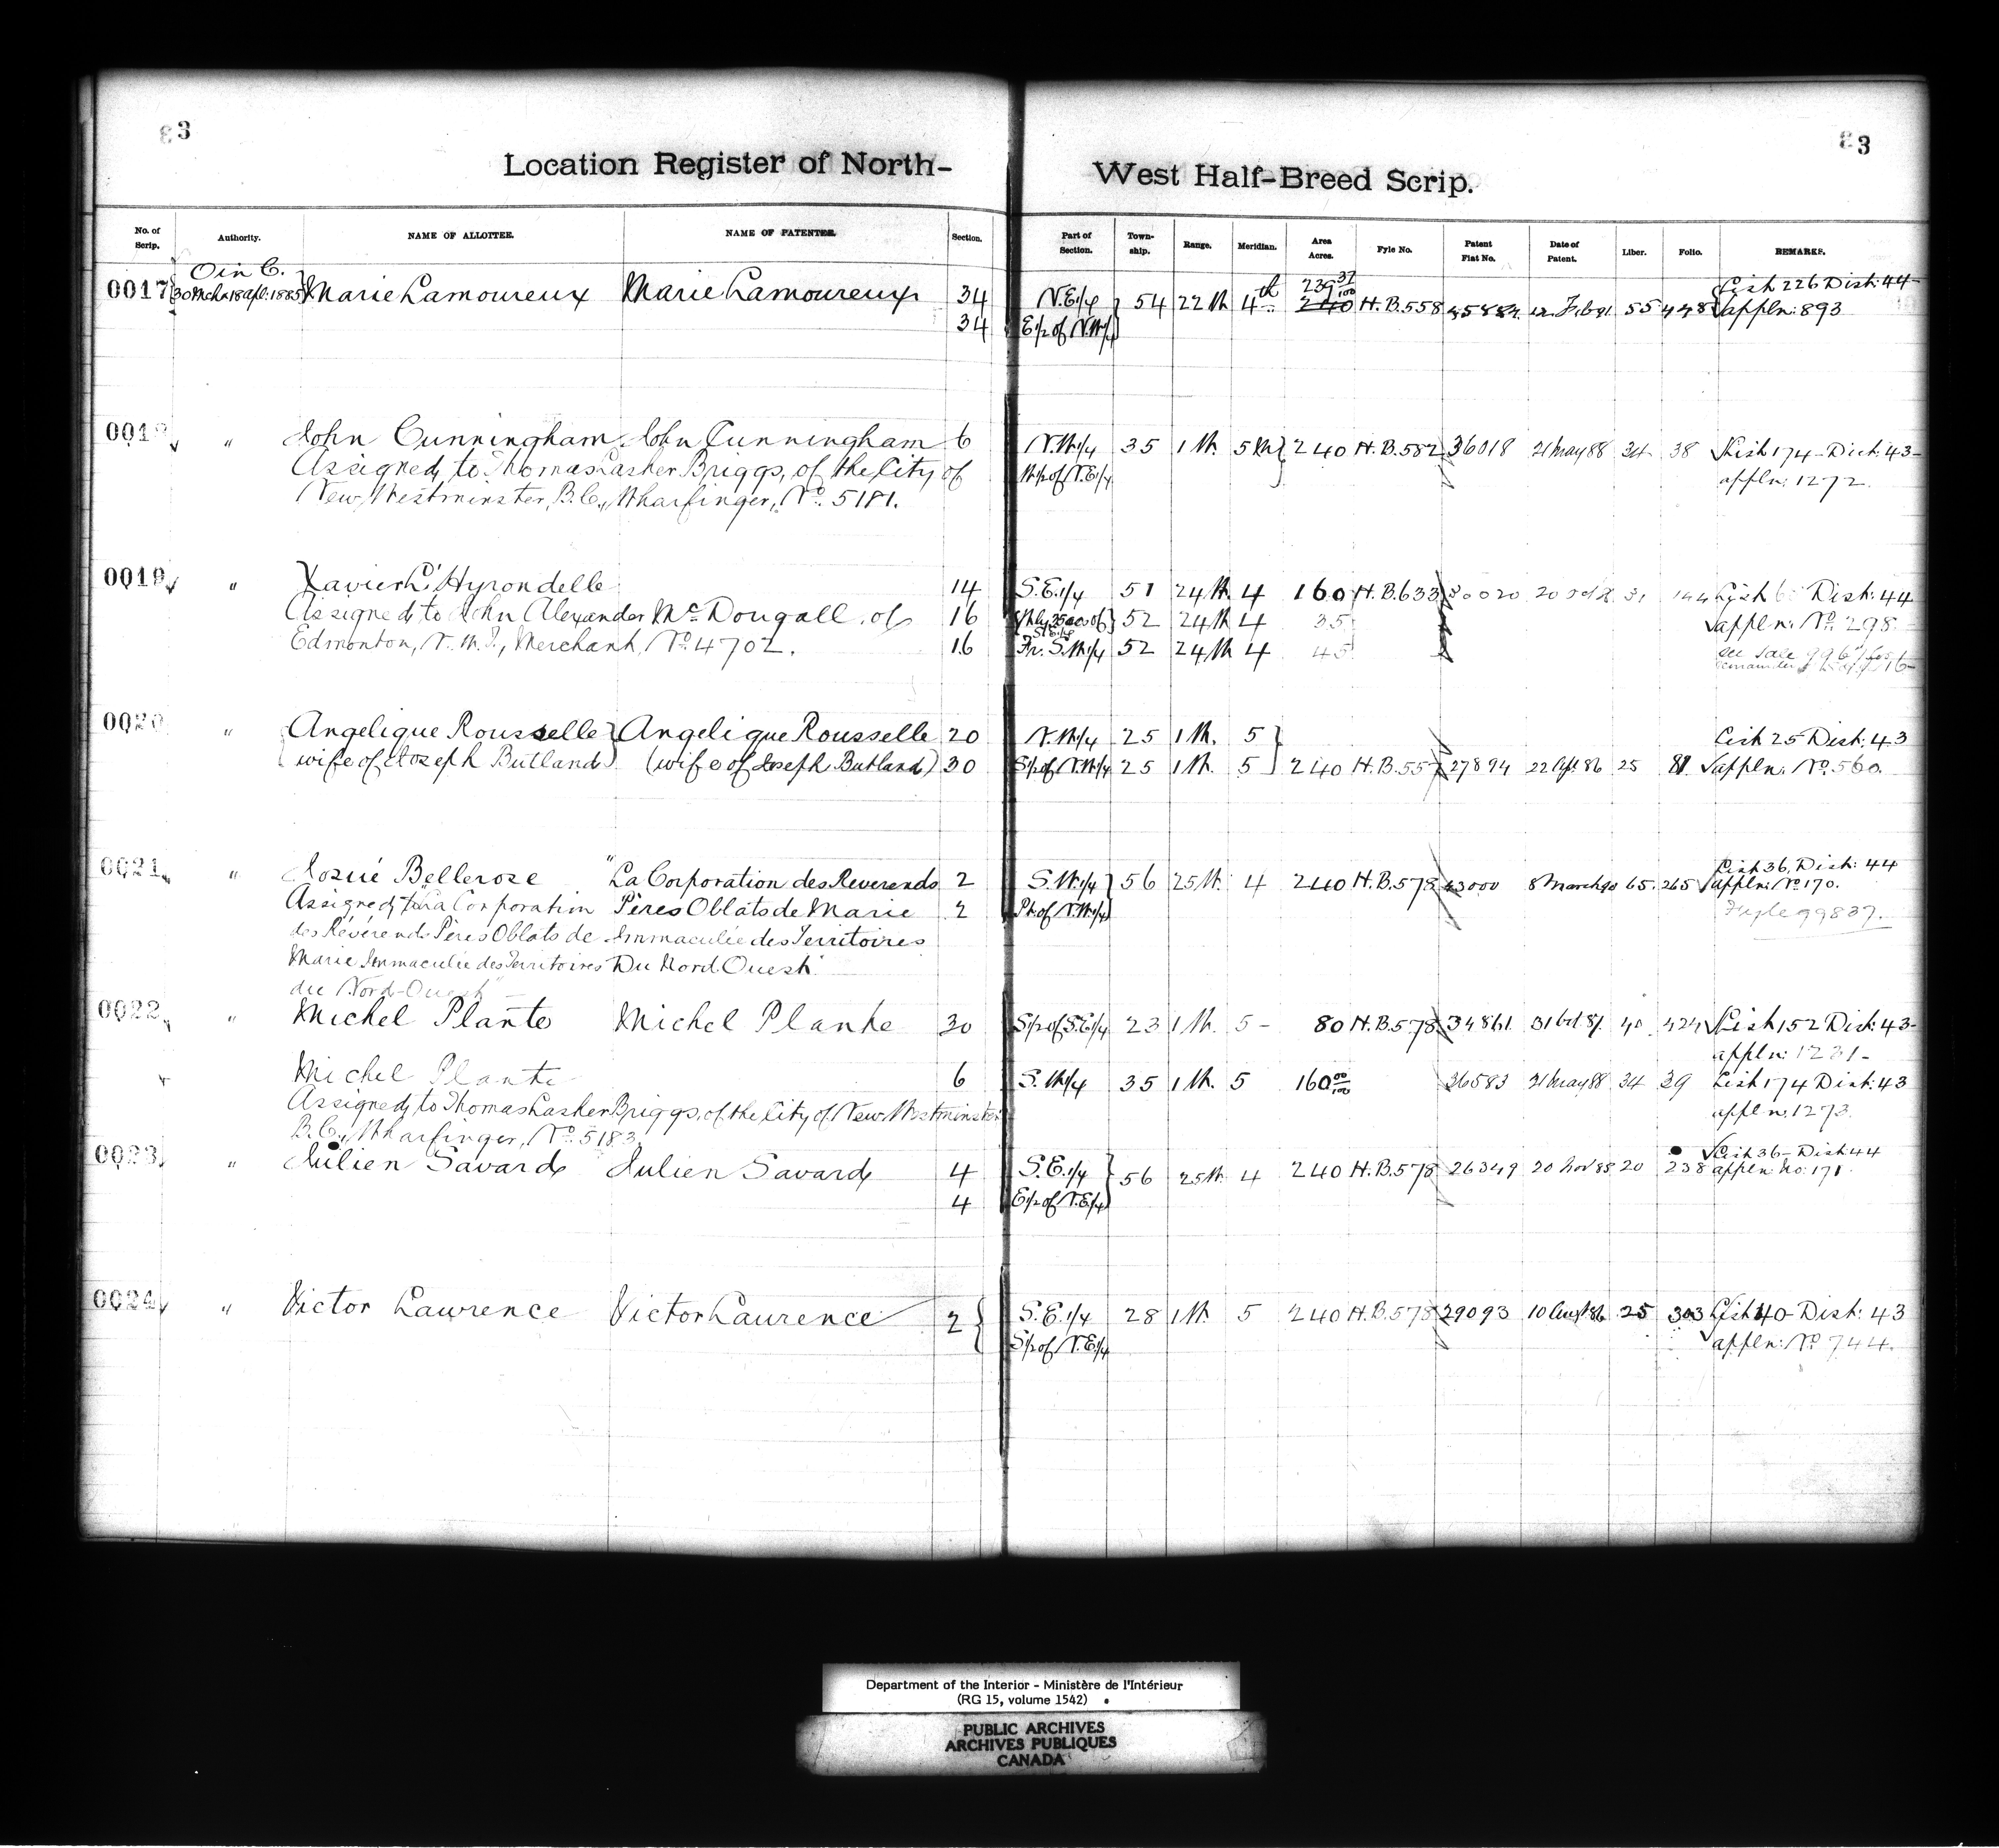 3 3
Location Register of North- West Half-Breed Scrip.
No. of Scrip. Authority. NAME OF ALLOTTEE. NAME OF PATENTEE. Section. Part of Section. Town-ship. Range. Meridian. Area Acres. Fyle No. Patent Fiat No. Date of Patent. Liber. Folio. REMARKS.
O in C. 239 37/100 List 226 Dist: 44-
0017 30 Mch & 18 Apl: 1885 Marie Lamoureux Marie Lamoureux 34 N.E.1/4 54 22 W 4th 240 H.B.558 12 Feb 91 55 448 appln: 893
34 E1/2 of N.W1/4
001 " John Cunningham John Cunningham 6 N.W.1/4 35 1 W. 5th 240 H.B.582 36018 21 May 88 34 38 List 174 - Dist: 43-
Assigned to Thomas Lasher Briggs, of the City of W1/2 of N.E1/4 appln: 1272
New Westminster, B.C., Wharfinger, No. 5181.
0019 " Xavier L'Hyrondelle 14 S.E.1/4 51 24 W 4 160 H.B.633 Dist: 44
Assigned to John Alexander McDougall, of 16 52 24 W 4 35 appln: No. 298
Edmonton, N.W.T., Merchant, No. 4702. 16 Fr. S.W1/4 52 24 W 4 45 see Sale
0020 " Angelique Rousselle Angelique Rousselle 20 N.W1/4 25 1 W. 5 List 25 Dist: 43
(wife of Joseph Butland) (wife of Joseph Butland) 30 S1/2 of N.W1/4 25 1 W. 5 240 H.B.557 27894 22 Apl 86 25 81 appln: No. 560.
0021 " Josué Bellerose "La Corporation des Reverends 2 S.W.1/4 56 25 W. 4 240 H.B.578 43000 8 March 90 65 265 List 36, Dist: 44
Assigned to "La Corporation Pères Oblats de Marie 2 Pt of N.W1/4 appln: No. 170.
des Révérends Pères Oblats de Immaculée des Territoires
Marie Immaculée des Territoires Du Nord Ouest."
du Nord-Ouest"
0022 " Michel Plante Michel Plante 30 S1/2 of S.E1/4 23 1 W. 5 - 80 H.B.578 34861 31 Oct 87 40 424 List 152 Dist: 43-
appln: 1231-
Michel Plante 6 S.W1/4 35 1 W. 5 160 00/100 36583 21 May 88 34 39 List 174 Dist: 43
Assigned to Thomas Lasher Briggs, of the City of New Westminster appln. 1273.
B.C., Wharfinger, No. 5183.
0023 " Julien Savard Julien Savard 4 S.E.1/4 56 25 W. 4 240 H.B.578 26349 20 Nov 85 20 238 List 36 - Dist 44
4 E1/2 of N.E1/4 appln: No: 171.
0024 " Victor Lawrence Victor Laurence 2 S.E.1/4 28 1 W. 5 240 H.B.578 29093 10 Augst 86 25 303 List 40 - Dist: 43
S1/2 of N.E1/4 appln: No 744.
Department of the Interior - Ministère de l'Intérieur
(RG 15, volume 1542)
PUBLIC ARCHIVES
ARCHIVES PUBLIQUES
CANADA